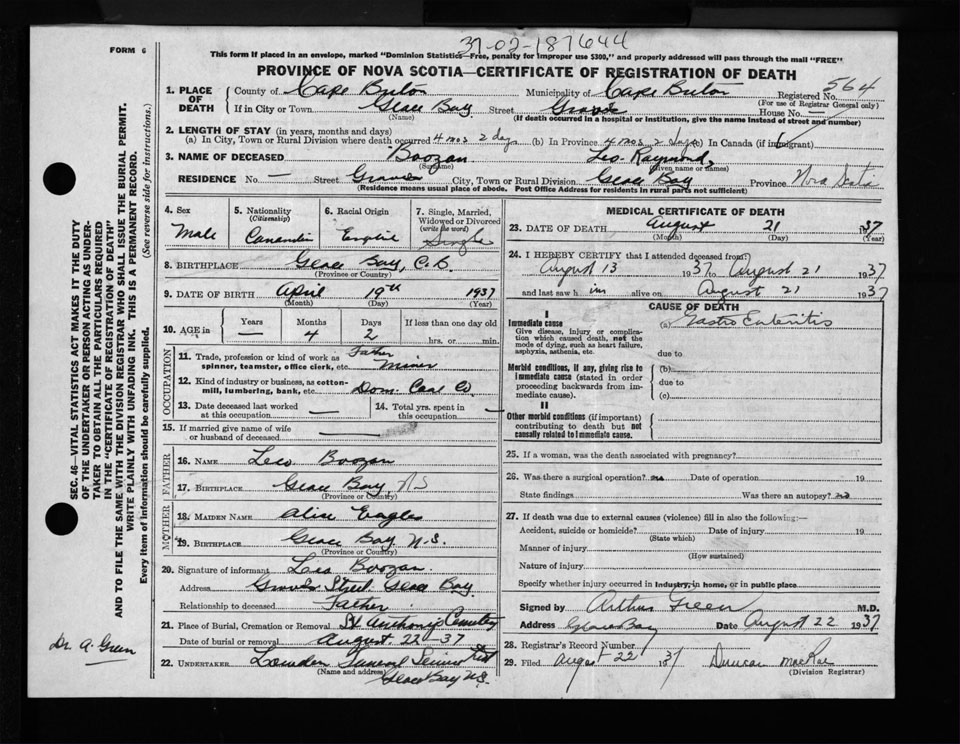 37-02-187644
FORM 6
This form if placed in an envelope, marked "Dominion Statistics—Free, penalty for improper use $300," and properly addressed will pass through the mail "FREE"
PROVINCE OF NOVA SCOTIA—CERTIFICATE OF REGISTRATION OF DEATH
1. PLACE OF DEATH County of Cape Breton Municipality of Cape Breton Registered No. 564
(For use of Registrar General only)
If in City or Town Glace Bay Street House No. —
(Name) (If death occurred in a hospital or institution, give the name instead of street and number)
2. LENGTH OF STAY (in years, months and days)
(a) In City, Town or Rural Division where death occurred 4 mos 2 days (b) In Province 4 mos 2 days (c) In Canada (if immigrant)
3. NAME OF DECEASED Boozan Leo Raymond
(Surname) (Given name or names)
RESIDENCE No. — Street City, Town or Rural Division Glace Bay Province Nova Scotia
(Residence means usual place of abode. Post Office Address for residents in rural parts not sufficient)
4. Sex Male
5. Nationality (Citizenship) Canadian
6. Racial Origin English
7. Single, Married, Widowed or Divorced (write the word) Single
8. BIRTHPLACE Glace Bay, C.B.
(Province or Country)
9. DATE OF BIRTH April 19th 1937
(Month) (Day) (Year)
10. AGE in Years — Months 4 Days 2 If less than one day old hrs. or min.
OCCUPATION
11. Trade, profession or kind of work as spinner, teamster, office clerk, etc. Father Miner
12. Kind of industry or business, as cotton-mill, lumbering, bank, etc. Dom. Coal Co
13. Date deceased last worked at this occupation —
14. Total yrs. spent in this occupation —
15. If married give name of wife or husband of deceased —
FATHER
16. NAME Leo Boozan
17. BIRTHPLACE Glace Bay N S
(Province or Country)
MOTHER
18. MAIDEN NAME Alice Eagles
19. BIRTHPLACE Glace Bay N.S.
(Province or Country)
20. Signature of informant Leo Boozan
Address Street Glace Bay
Relationship to deceased Father
21. Place of Burial, Cremation or Removal St Anthony's Cemetery
Date of burial or removal August 22 - 37
22. UNDERTAKER Funeral Service
(Name and address) Glace Bay N.S.
MEDICAL CERTIFICATE OF DEATH
23. DATE OF DEATH August 21 1937
(Month) (Day) (Year)
24. I HEREBY CERTIFY that I attended deceased from:
August 13 1937 to August 21 1937
and last saw him alive on August 21 1937
CAUSE OF DEATH
I
Immediate cause (a) Gastro Enteritis
Give disease, injury or complication which caused death, not the mode of dying, such as heart failure, asphyxia, asthenia, etc.
due to
Morbid conditions, if any, giving rise to immediate cause (stated in order proceeding backwards from immediate cause).
(b)
due to
(c)
II
Other morbid conditions (if important) contributing to death but not causally related to immediate cause.
25. If a woman, was the death associated with pregnancy?
26. Was there a surgical operation? no Date of operation 19
State findings Was there an autopsy? no
27. If death was due to external causes (violence) fill in also the following:—
Accident, suicide or homicide? Date of injury 19
(State which)
Manner of injury
(How sustained)
Nature of injury
Specify whether injury occurred in industry, in home, or in public place
Signed by Arthur Green M.D.
Address Glace Bay Date August 22 1937
28. Registrar's Record Number
29. Filed August 22 1937 Duncan MacRae
(Division Registrar)
SEC. 46—VITAL STATISTICS ACT MAKES IT THE DUTY
OF THE UNDERTAKER OR PERSON ACTING AS UNDER-
TAKER TO OBTAIN ALL THE PARTICULARS REQUIRED
IN THE "CERTIFICATE OF REGISTRATION OF DEATH"
AND TO FILE THE SAME WITH THE DIVISION REGISTRAR WHO SHALL ISSUE THE BURIAL PERMIT.
WRITE PLAINLY WITH UNFADING INK. THIS IS A PERMANENT RECORD.
Every item of information should be carefully supplied. (See reverse side for instructions.)
Dr. A. Green